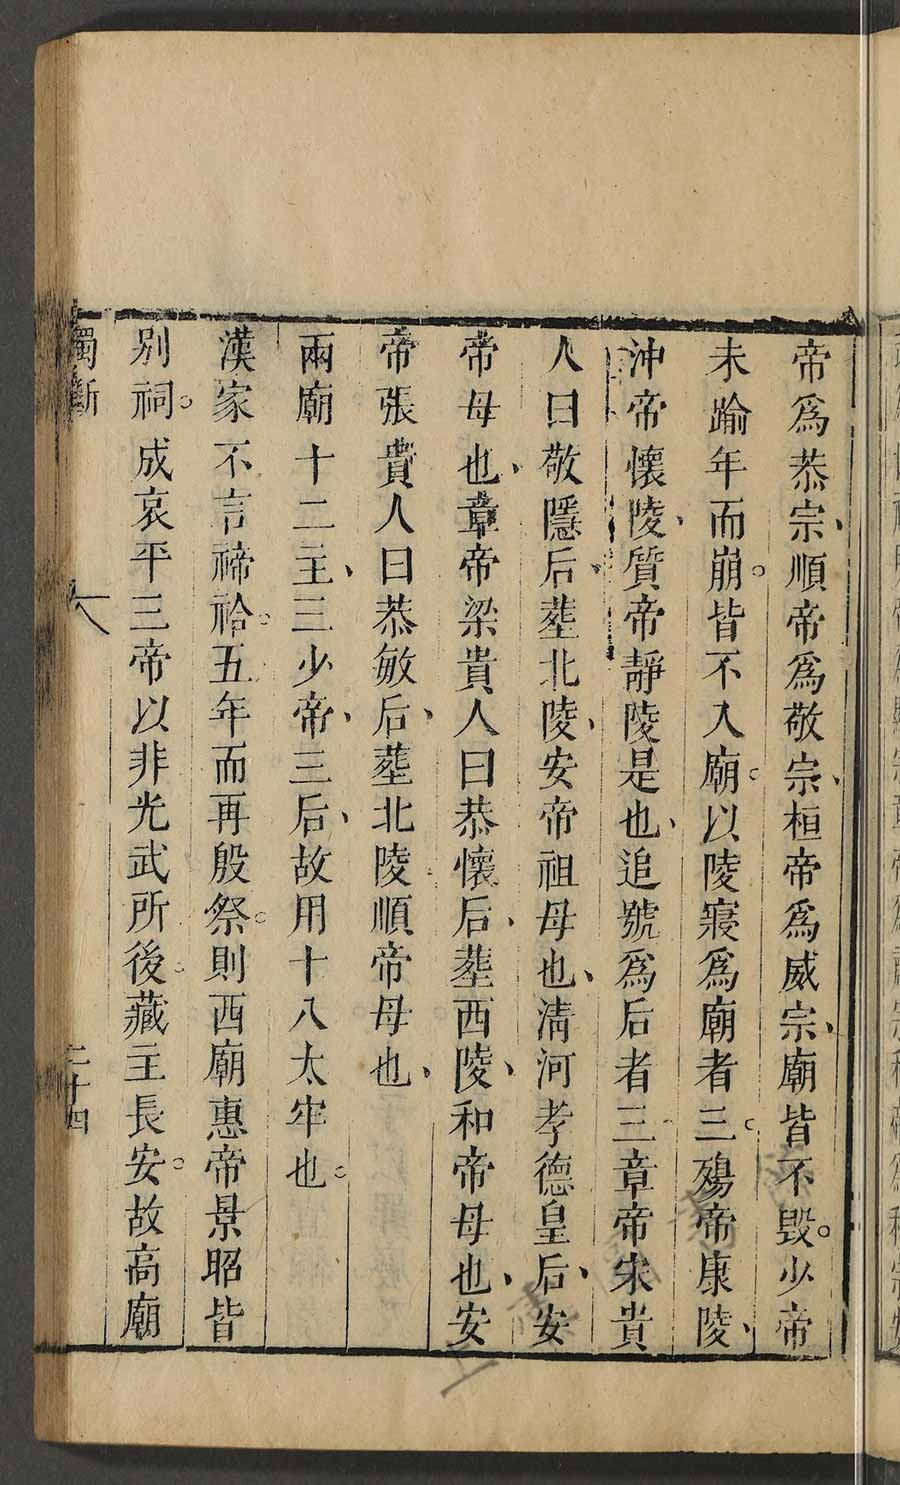 帝爲恭宗、順帝爲敬宗、桓帝爲威宗、廟皆不毀。少帝
未踰年而崩。皆不入廟。以陵寢爲廟者三。殤帝康陵、
沖帝懷陵、質帝靜陵是也、追號爲后者三、章帝宋貴
人曰敬隱后、葬北陵、安帝祖母也、清河孝德皇后、安
帝母也、章帝梁貴人曰恭懷后、葬西陵、和帝母也、安
帝張貴人曰恭敏后、葬北陵順帝母也、
兩廟十二主、三少帝、三后、故用十八太牢也。
漢家不言禘祫。五年而再殷祭。則西廟惠帝景昭皆
別祠。成哀平三帝以非光武所後。藏主長安。故高廟
獨斷
二十四